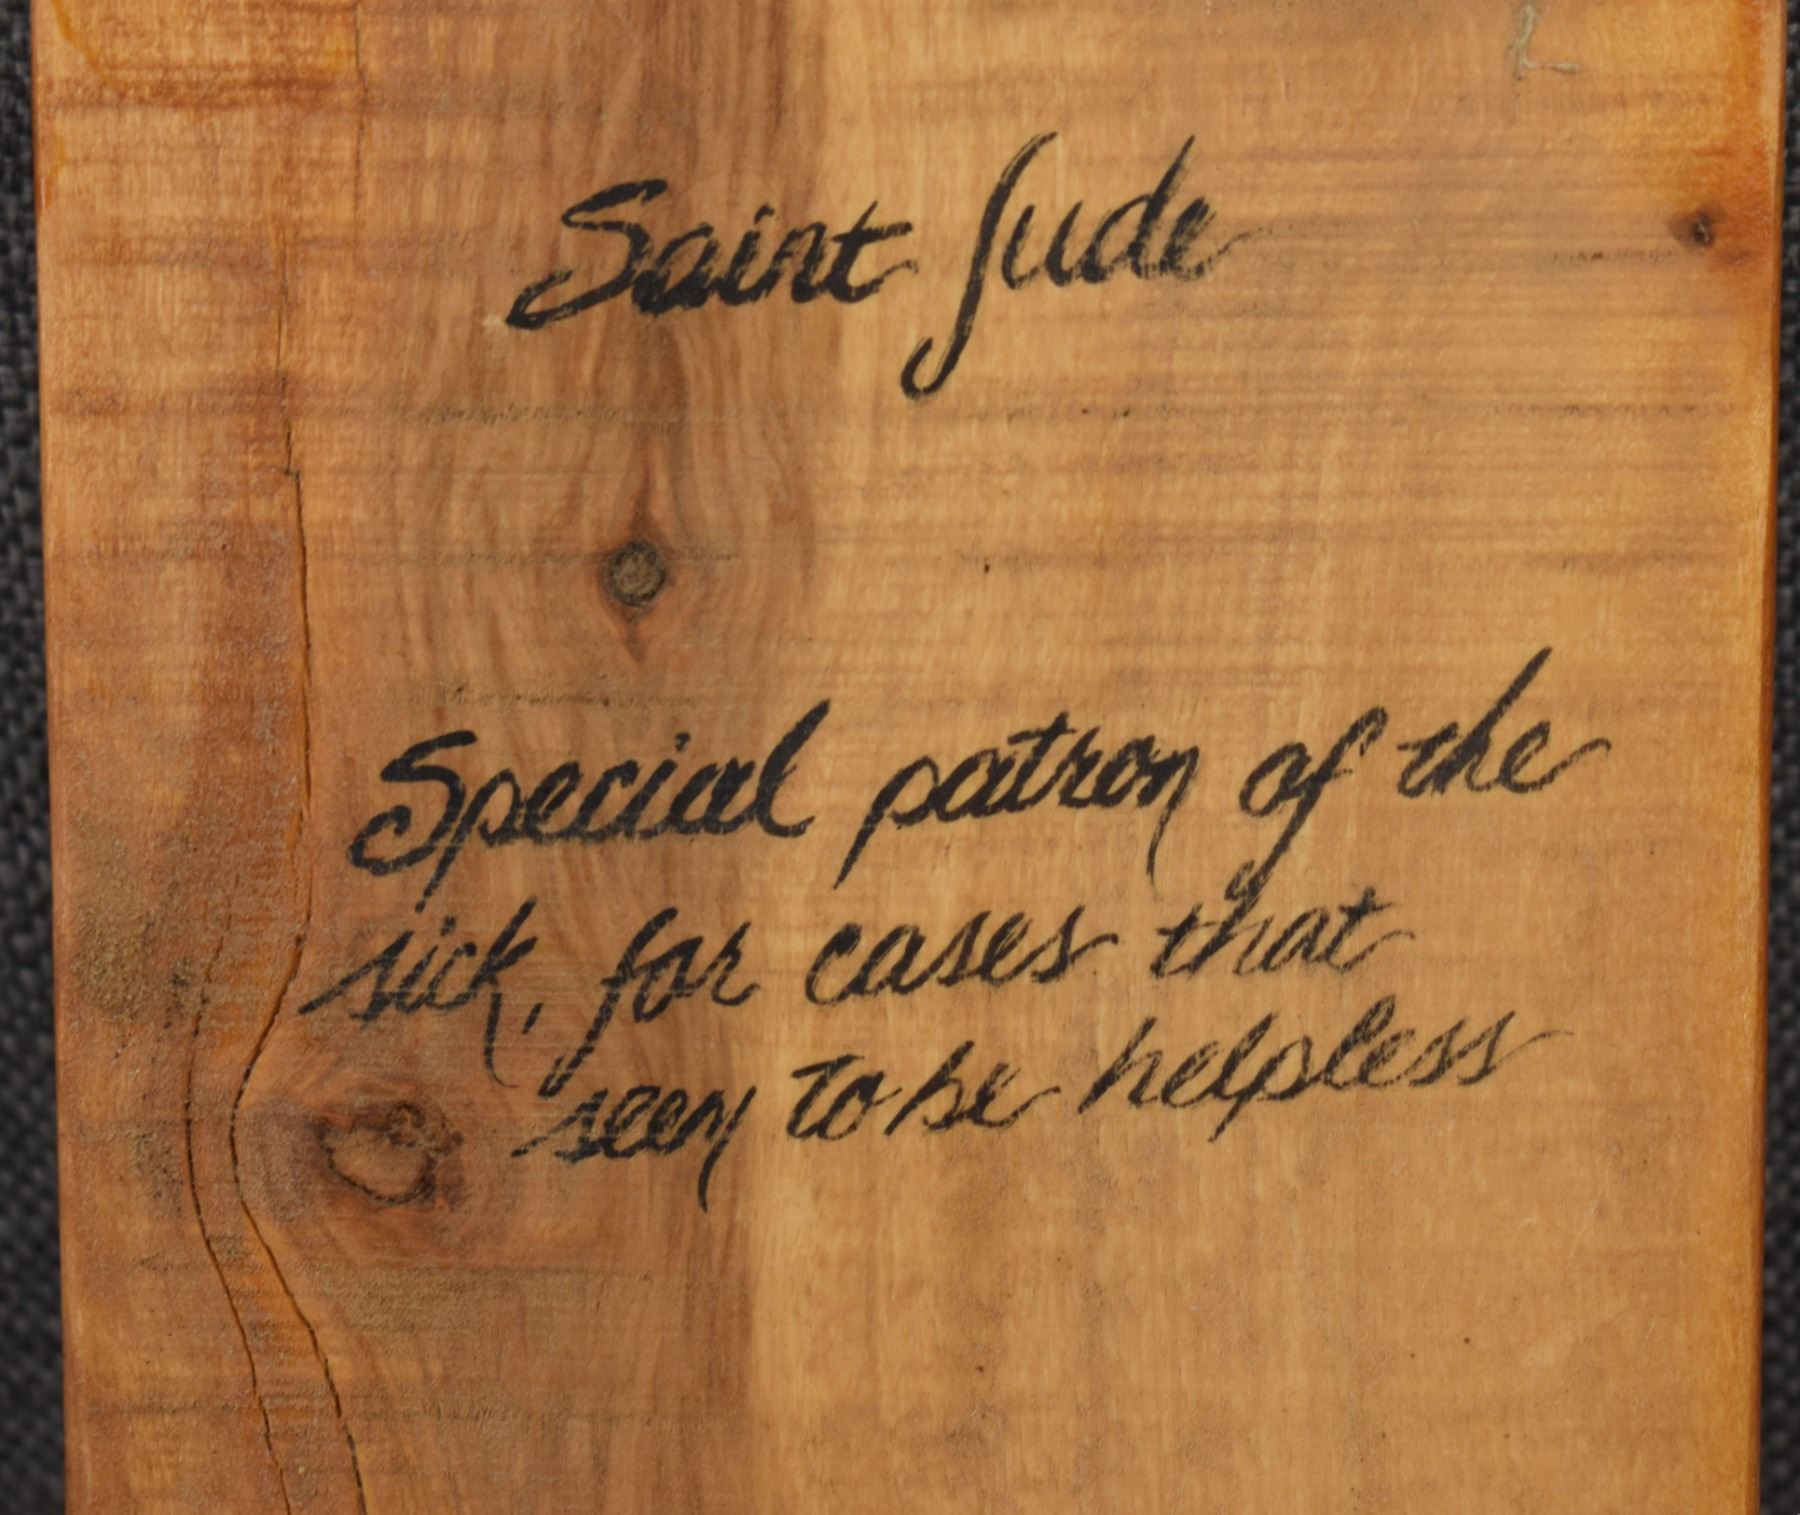 Saint Jude
Special patron of the
sick, for cases that
seem to be helpless